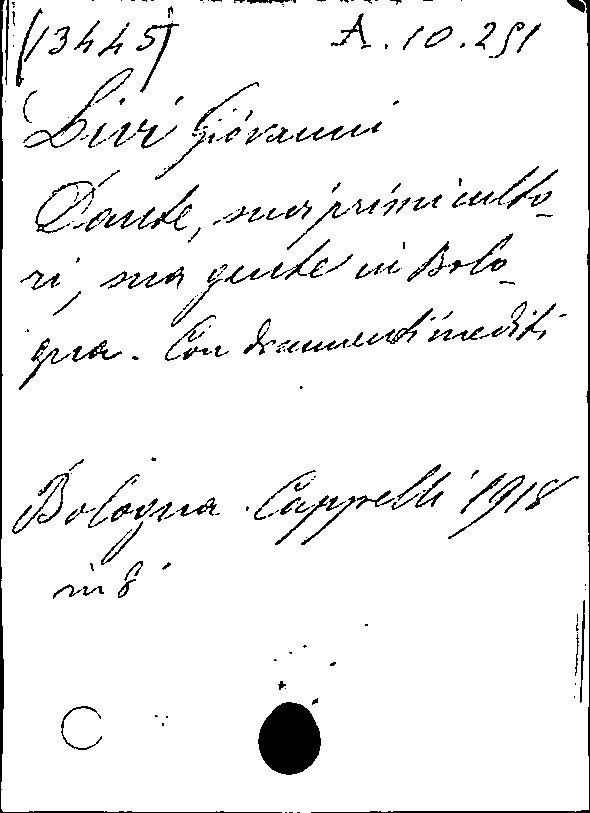 (13445) A.10.251
Livi Giovanni
Dante, suoi primi culto-
ri, sua gente in Bolo-
gna. Con documenti inediti
Bologna. Cappelli 1918
in 8°